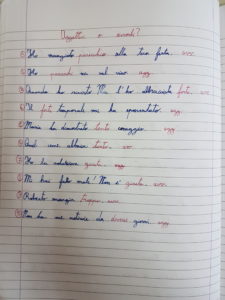 Aggettivi o avverbi?
Ho mangiato parecchio alla tua festa. avv.
Ho parecchi nei sul viso. agg.
Quando ho l'ho abbracciato forte. avv.
Il forte temporale mi ha spaventato. agg.
Maria ha dimostrato tanto coraggio. agg.
Quel cane abbaia tanto. avv.
Ho la soluzione giusta. agg.
Mi hai fatto male! Non è giusto. avv.
Roberto mangia troppo. avv.
Non ho sue notizie da diversi giorni. agg.